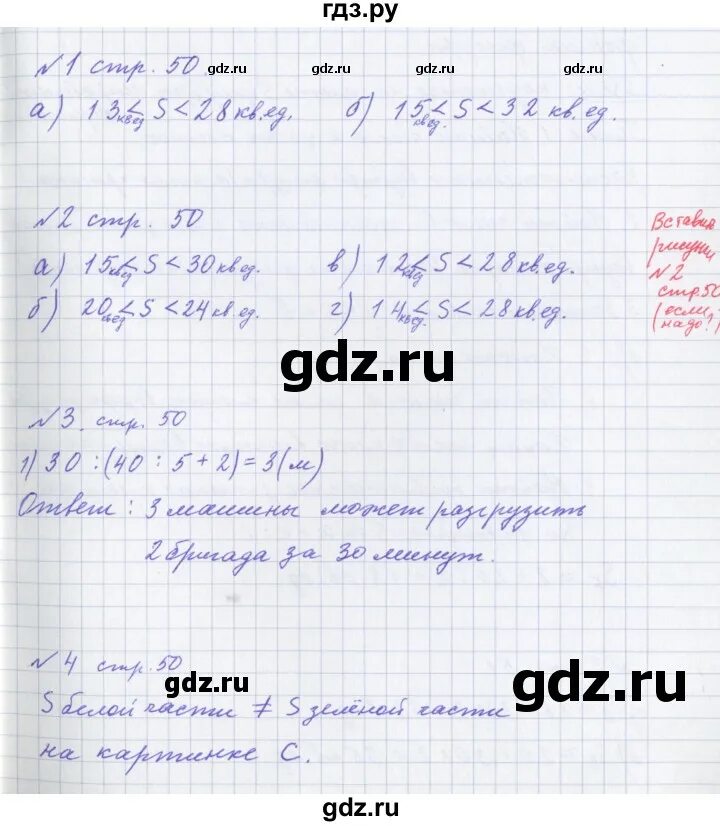 гдз.ру
№1 стр. 50
gdz.ru gdz.ru gdz.ru gdz.ru
а) 13 кв.ед ≤ S < 28 кв.ед. б) 15 кв.ед. ≤ S < 32 кв.ед.
№2 стр. 50
а) 15 кв.ед ≤ S < 30 кв.ед. в) 12 кв.ед ≤ S < 28 кв.ед.
б) 20 кв.ед ≤ S < 24 кв.ед. г) 14 кв.ед. ≤ S < 28 кв.ед.
Вставил
рисунки
№2
стр.50
(если
надо?)
gdz.ru
№3. стр. 50
1) 30 : (40 : 5 + 2) = 3 (м)
Ответ: 3 машины может разгрузить
2 бригада за 30 минут.
№4 стр. 50
gdz.ru
gdz.ru
S белой части ≠ S зелёной части
на картинке С.
gdz.ru